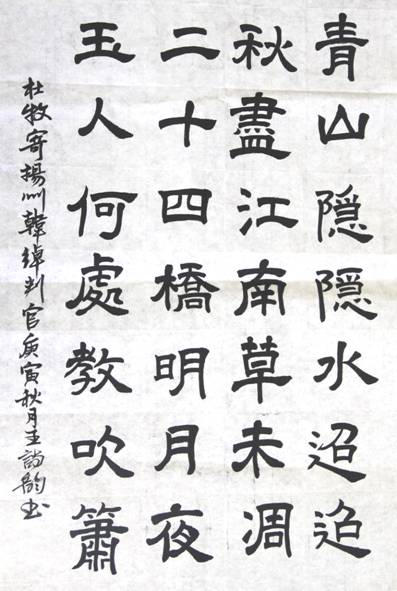 青山隐隐水迢迢
秋盡江南草未凋
二十四橋明月夜
玉人何處教吹簫
杜牧寄揚州韓綽判官庚寅秋月王韵书